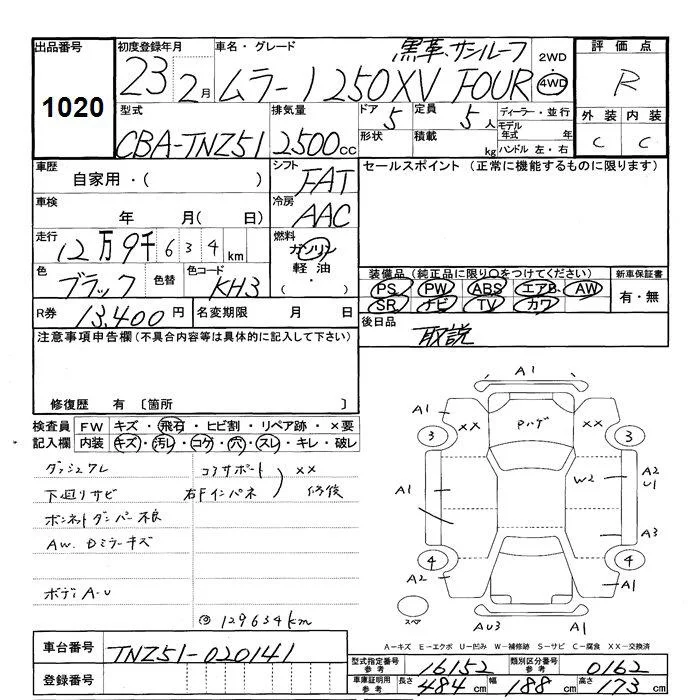 出品番号
1020
初度登録年月
23 2月
車名・グレード
黒革,サンルーフ
ムラーノ250XV FOUR
2WD・4WD
評価点
R
型式
CBA-TNZ51
排気量
2500cc
ドア 5
形状
定員 5人
積載 kg
ディーラー・並行
モデル年式 年
ハンドル 左・右
外装 内装
C C
車歴
自家用・( )
シフト
FAT
セールスポイント (正常に機能するものに限ります)
車検
年 月( 日)
冷房
AAC
走行
12万9千634km
燃料
ガソリン
軽油
( ・ )
色
ブラック
色替
色コード
KH3
装備品(純正品に限り○をつけてください)
PS PW ABS エアB. AW
SR ナビ TV カワ
新車保証書
有・無
R券 13,400円
名変期限 月 日
後日品
取説
注意事項申告欄(不具合内容等は具体的に記入して下さい)
修復歴 有 〔箇所 〕
検査員記入欄
FW キズ・飛石・ヒビ割・リペア跡・×要
内装 キズ・汚レ・コゲ・穴・スレ・キレ・破レ
ダッシュワレ
コアサポート
××
下廻りサビ
右Fインパネ
修後
ボンネットダンパー不良
AW. Dミラーキズ
ボディ A-U
129634km
A1
A1
×× Pハゲ ××
3 3
W2 A2
U1
A1
A3
4 4
A2 A1
スペア
AU3 A1
A-キズ E-エクボ U-凹み W-補修跡 S-サビ C-腐食 XX-交換済
車台番号
TNZ51-020141
登録番号
型式指定番号 参考 16152
類別区分番号 参考 0162
車庫証明用 参考 長さ 484cm 幅 188cm 高さ 173cm